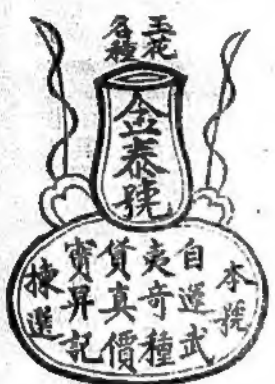 玉花
各種
金泰號
本號
自運武
夷奇種
貨真價
實昇記
揀選